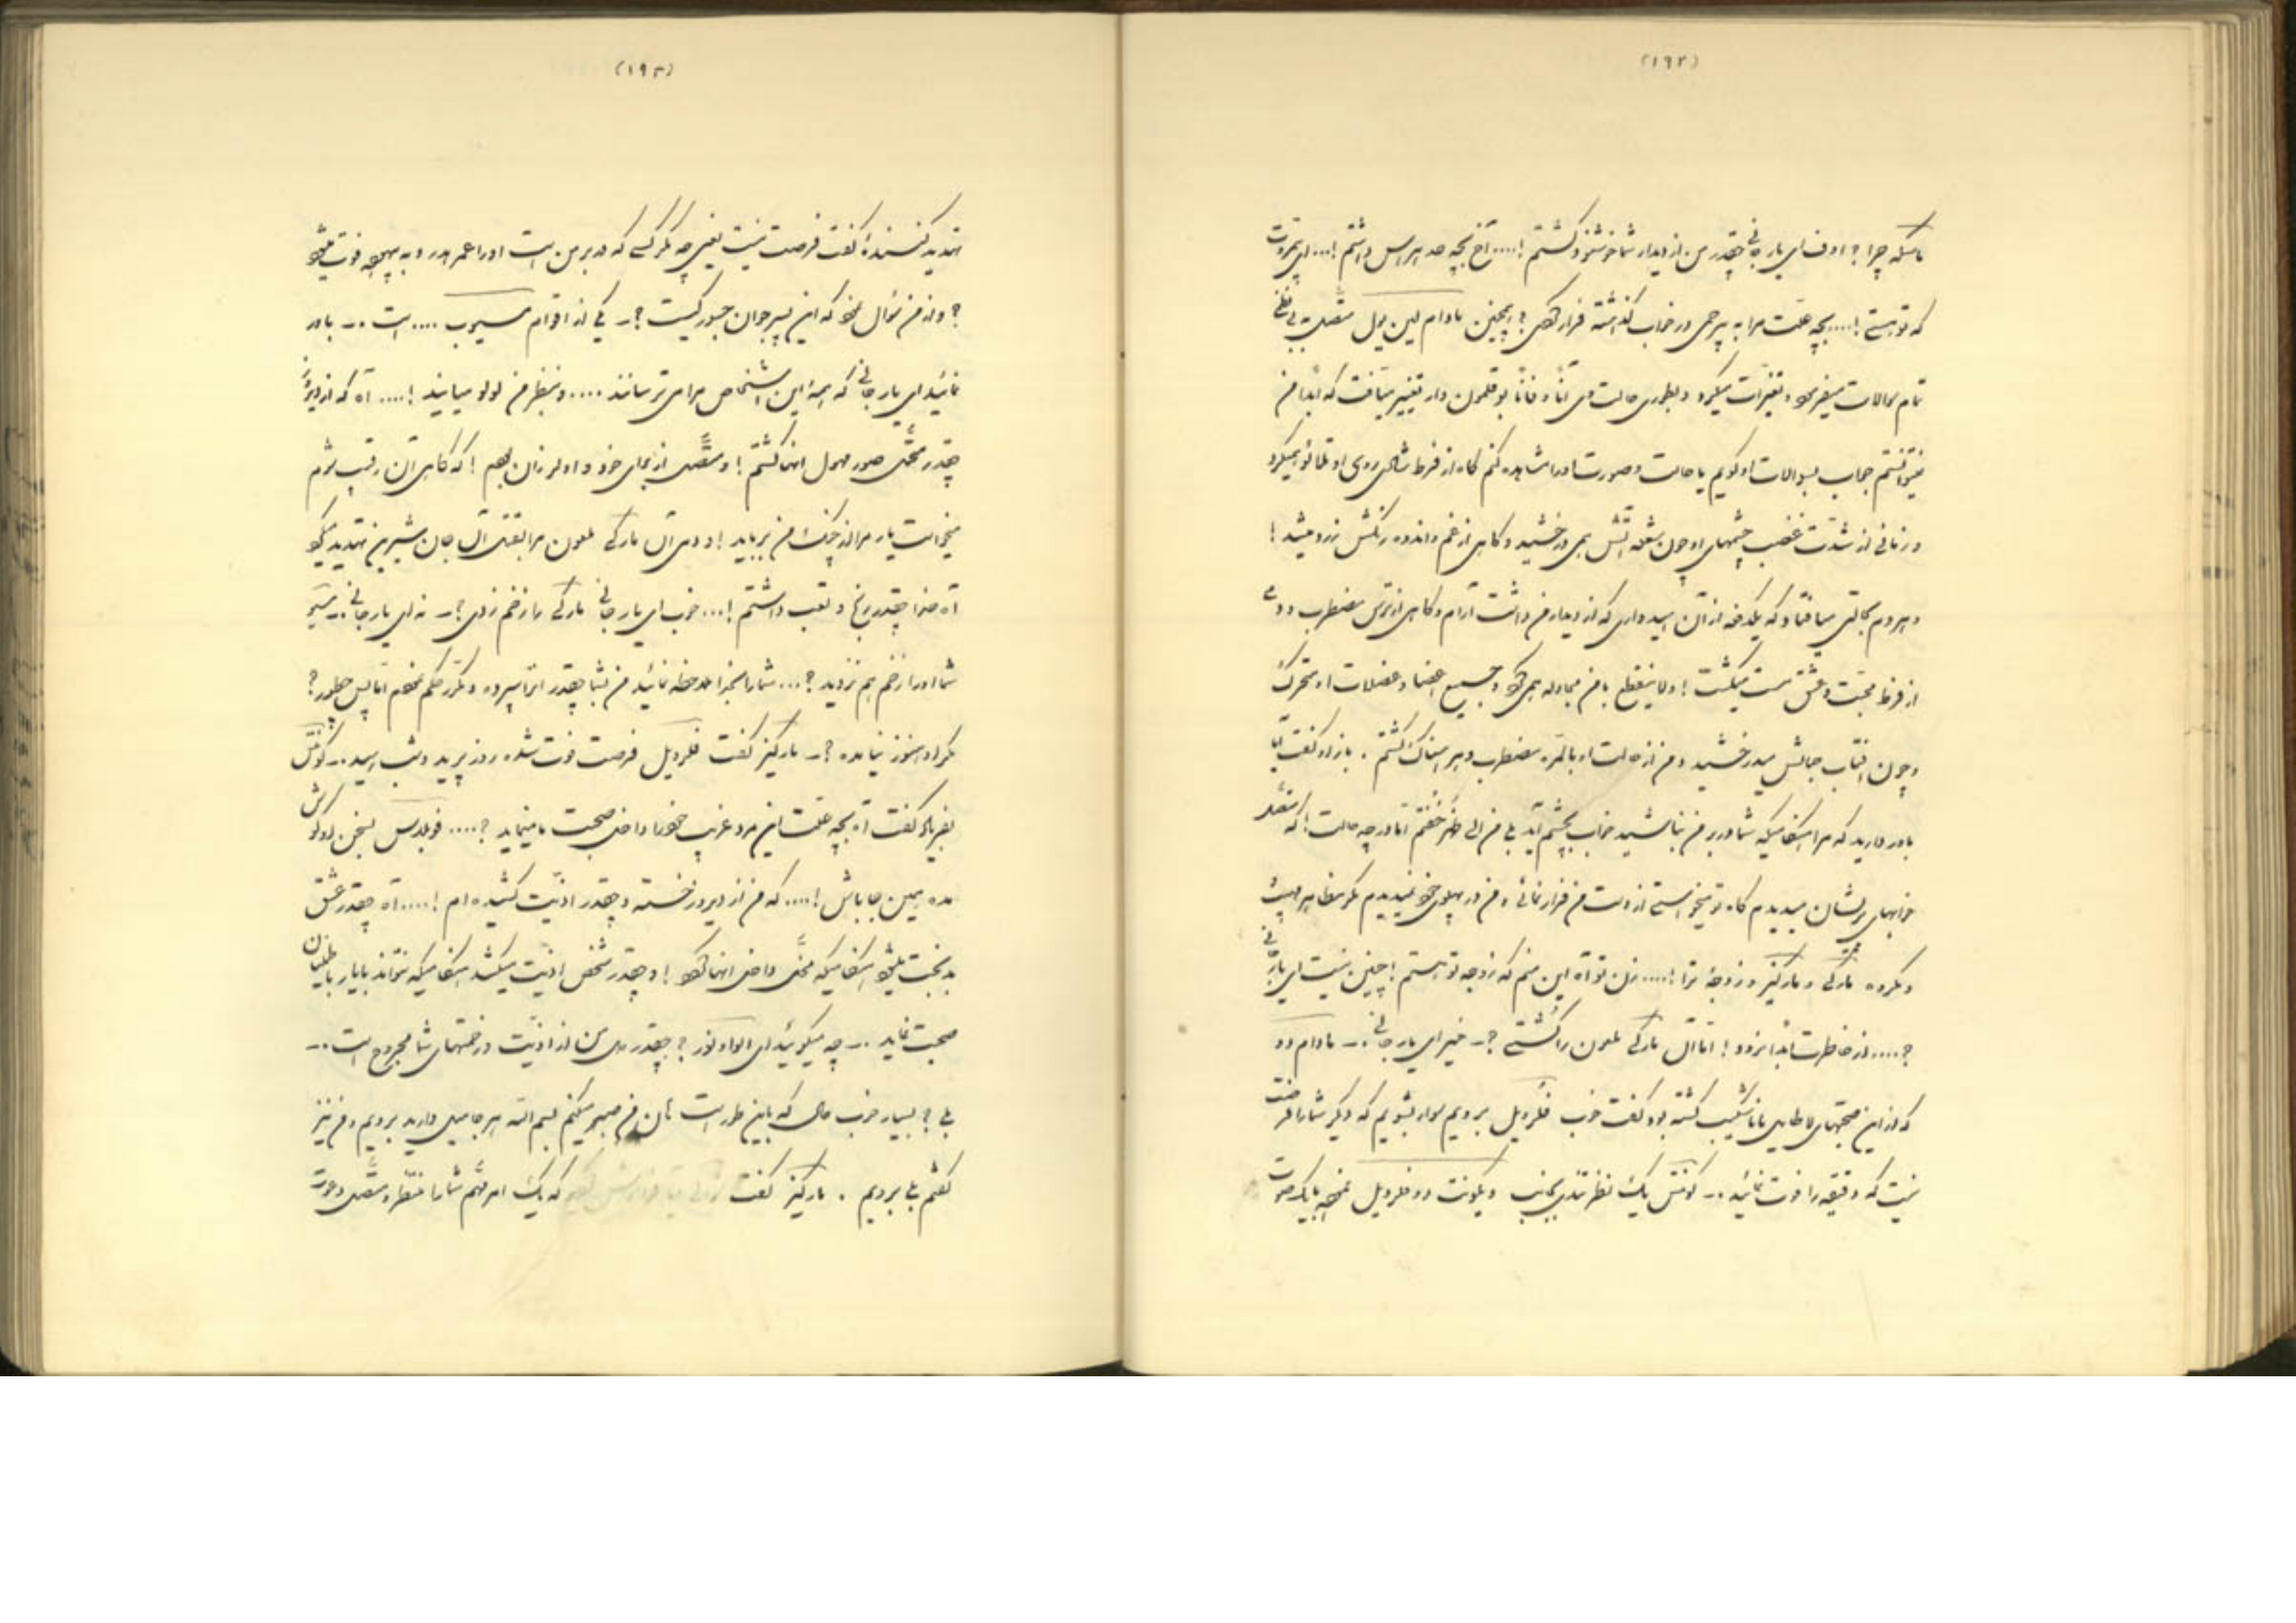 (۱۹۲)
ماسکه چرا؟ اوف ای یار جانی چقدر من از دیدار شما خوشنود گشتم !.... آخ بچه حد هراس داشتم !... ای بیمروت
که تو هستی !.... بچه علت مرا به بیرحمی در خواب گذاشته فرار کردی ؟ همچنین مادام لین یول متصل بی
تمام سوالات میفرمود و تغیرات میکرد و بطوری حالت وی آناً و فاناً بوقلمون وار تغییر مییافت که ابداً من
نمیتوانستم جواب بسوالات او گویم یا حالت و صورت او را مشاهده کنم گاه از فرط شادی روی او تلألؤ میکرد
و زمانی از شدت غضب چشمهای او چون شعله آتش همی درخشید و گاهی از غم و اندوه رنگش زرد میشد !
و هر دم بحالتی میافتاد که یکدفعه از آن امیدواری که از دیدار من داشت آرام و گاهی از ترس مضطرب و دمی
از فرط محبت و عشق مست میگشت ! و لاینقطع با من مجادله همی کرد و جمیع اعضا و عضلات او متحرک
و چون آفتاب جمالش میدرخشید و من از حالت او بالمره مضطرب و هراسناک گشتم . باز او گفت آیا
باور دارید که مرا هنگامیکه شما در بر من نباشید خواب بچشم آید بلی من الی ظهر خفتم اما در چه حالت ! که متصل
خوابهای پریشان میدیدم گاه تو میخواستی از دست من فرار نمائی و من در پهلوی خود نمیدیدم مگر
و مکروه مارکی و مارکیز و زوجه ترا !.... زن تو آه این منم که زوجه تو هستم ! چنین نیست ای یار جانی
؟.... از خاطرت ابداً نرود ! اما آن مارکی ملعون را کشتی ؟ـ خیر ای یار جانی .ـ مادام دو
که از این صحبتهای لاطایل ناشکیب گشته بود گفت خوب فلرویل برویم سوار بشویم که دیگر شما را فرصت
نیست که دقیقه را فوت نمائید .ـ کونتس یک نظر تندی بجانب ویکونت دو فلرویل نمود با یک صورت
(۱۹۳)
تهدید کننده گفت فرصت نیست یعنی چه مگر کسی که در بر من است او را عمر هدر و بیهوده فوت میشود
؟ و از من سؤال نمود که این پسر جوان جسور کیست ؟ـ یکی از اقوام .... است .ـ باور
نمائید ای یار جانی که همه این اشخاص مرا می ترسانند .... و بنظر من لولو میایند !.... آه که از دیروز
چقدر متحمل صور مهول اینها گشتم ! و متصل از برای خود و او لرزان بودم ! که گاهی آن رقیب شوم
میخواست یار مرا از چنگ من برباید ! و دمی آن مارکی ملعون مرا بقتل آن جان شیرین تهدید میکرد
آه خدا چقدر رنج و تعب داشتم !... خوب ای یار جانی مارکی را زخم زدی ؟ـ نه ای یار جانی .ـ
شما او را زخم هم نزدید ؟... شما را بخدا ملاحظه نمائید من بشما چقدر آنرا سپرده و مکرر حکم نمودم اما پس چطور ؟
مگر او هنوز نیامده ؟ـ مارکیز گفت فلرویل فرصت فوت شده روز پرید و شب رسید .ـ کونتس
بفریاد گفت آه بچه علت این مرد غریب خود را داخل صحبت ما مینماید ؟....
مده همین جا باش !.... که من از دیروز خسته و چقدر اذیت کشیده ام !.... آه چقدر عشق
بدبخت میشود هنگامیکه محل داخل اینها گردد ! و چقدر شخص اذیت میکشد هنگامیکه نتواند با یار باطمینان
صحبت نماید .ـ چه میگوئید ای الواه نور ؟ چقدر دل من از اذیت و زحمتهای شما مجروح است .ـ
بلی ؟ بسیار خوب حال که باین طور است من صبر میکنم بسم الله هر جا میل دارید برویم و من نیز
گفتم بلی برویم . مارکیز گفت که یک امر مهم شما را منتظر و متصل دعوت